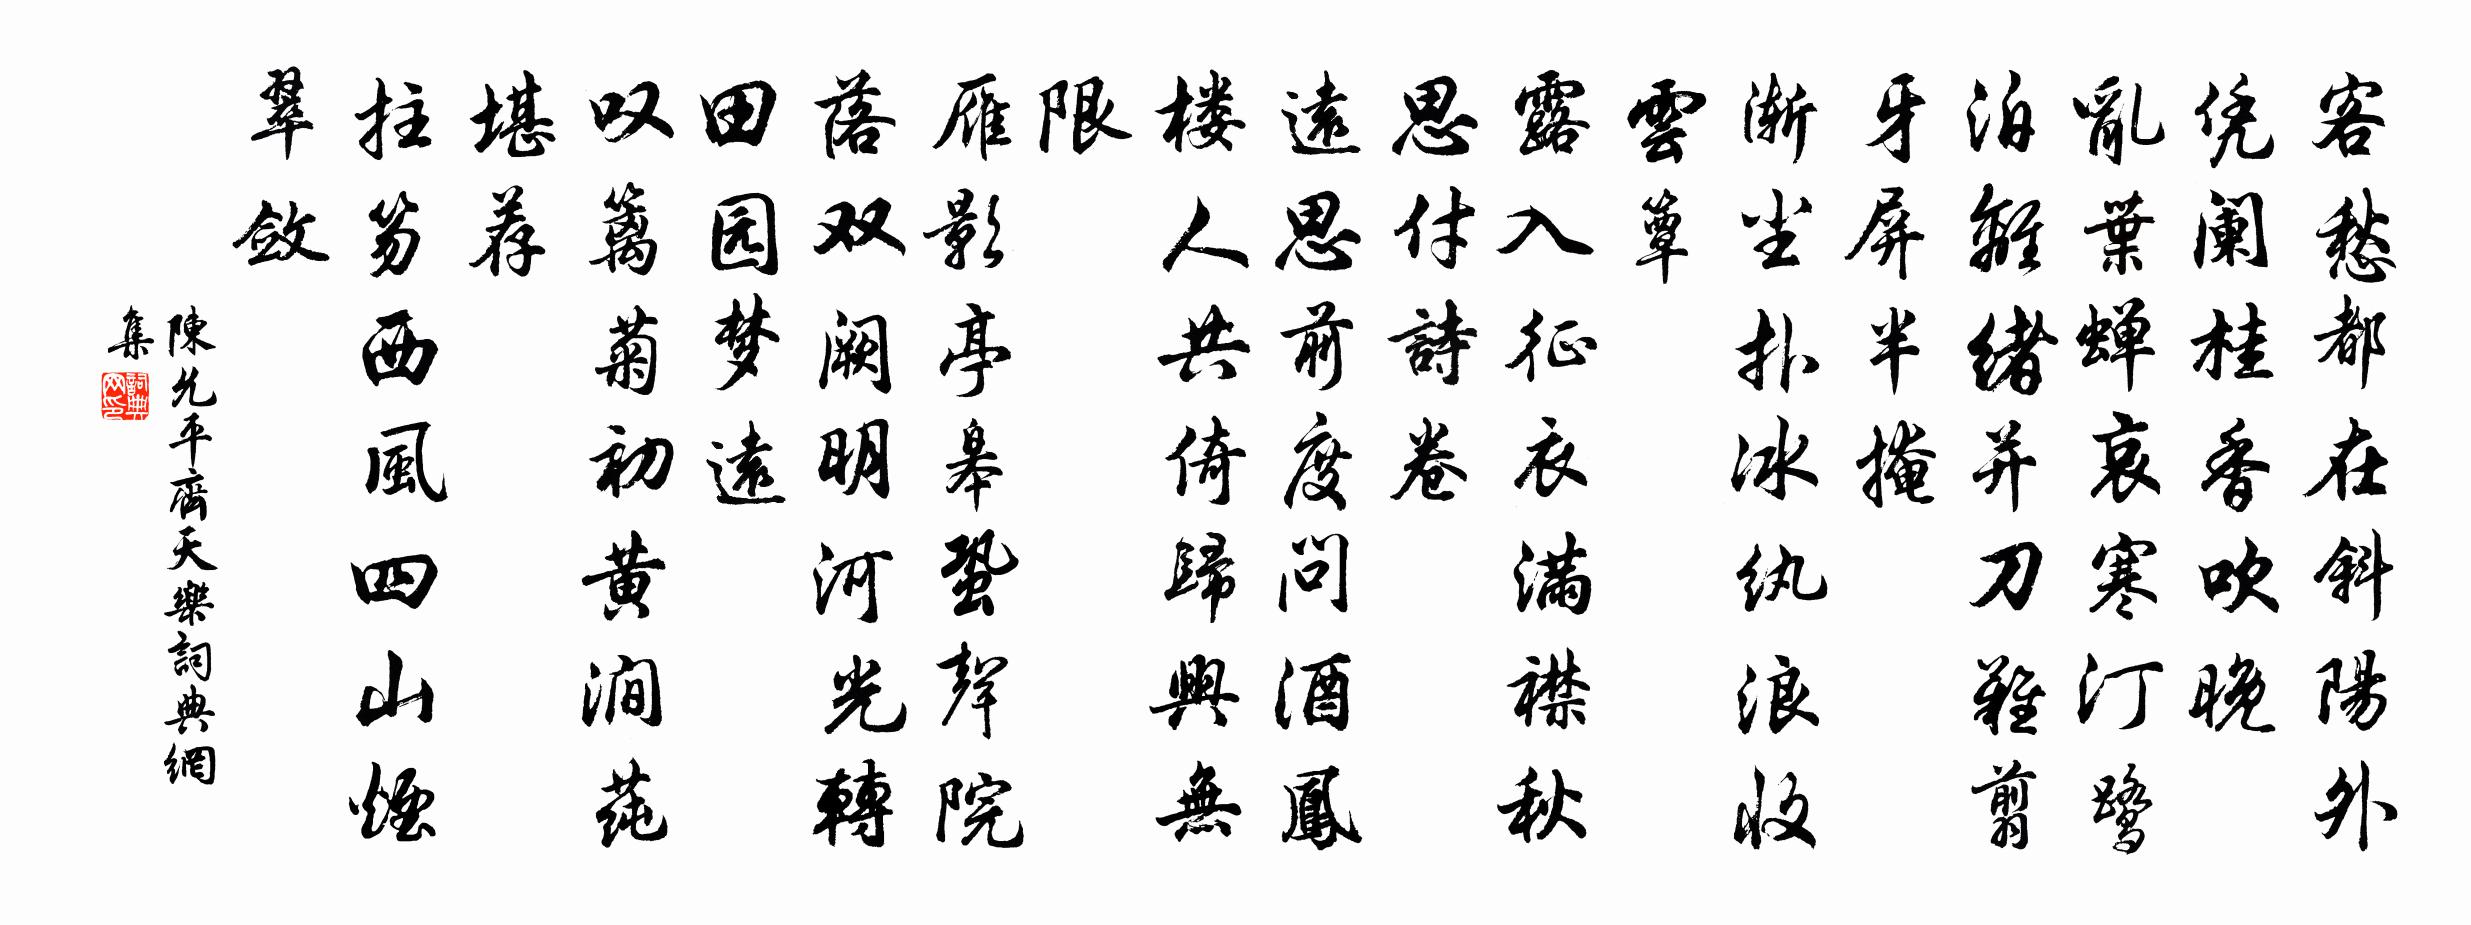 客愁都在斜陽外
凭阑桂香吹晚
亂葉蝉哀寒汀鹭
泊離緒并刀難剪
牙屏半掩
渐尘扑冰纨浪收
雲簟
露入征衣满襟秋
思付詩卷
遠思前度问酒鳳
楼人共倚歸興無
限
雁影亭皋蛩聲院
落双阙明河光轉
田园梦遠
叹篱菊初黄涧莼
堪荐
拄笏西風四山煙
翠敛
陳允平齊天樂詞典網
集
詞典
网印